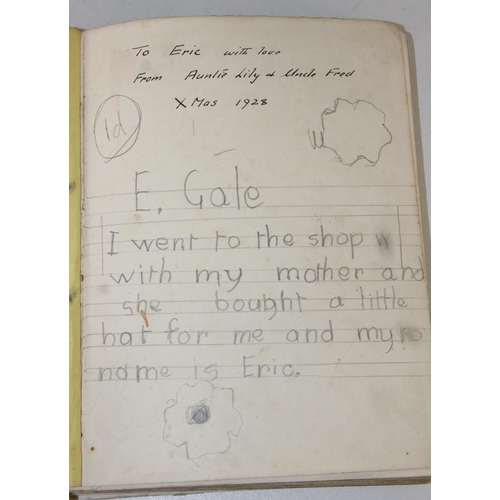 To Eric with love
From Auntie Lily & Uncle Fred
X Mas 1928
1d
E. Gale
I went to the shop
with my mother and
she bought a little
hat for me and my
name is Eric.